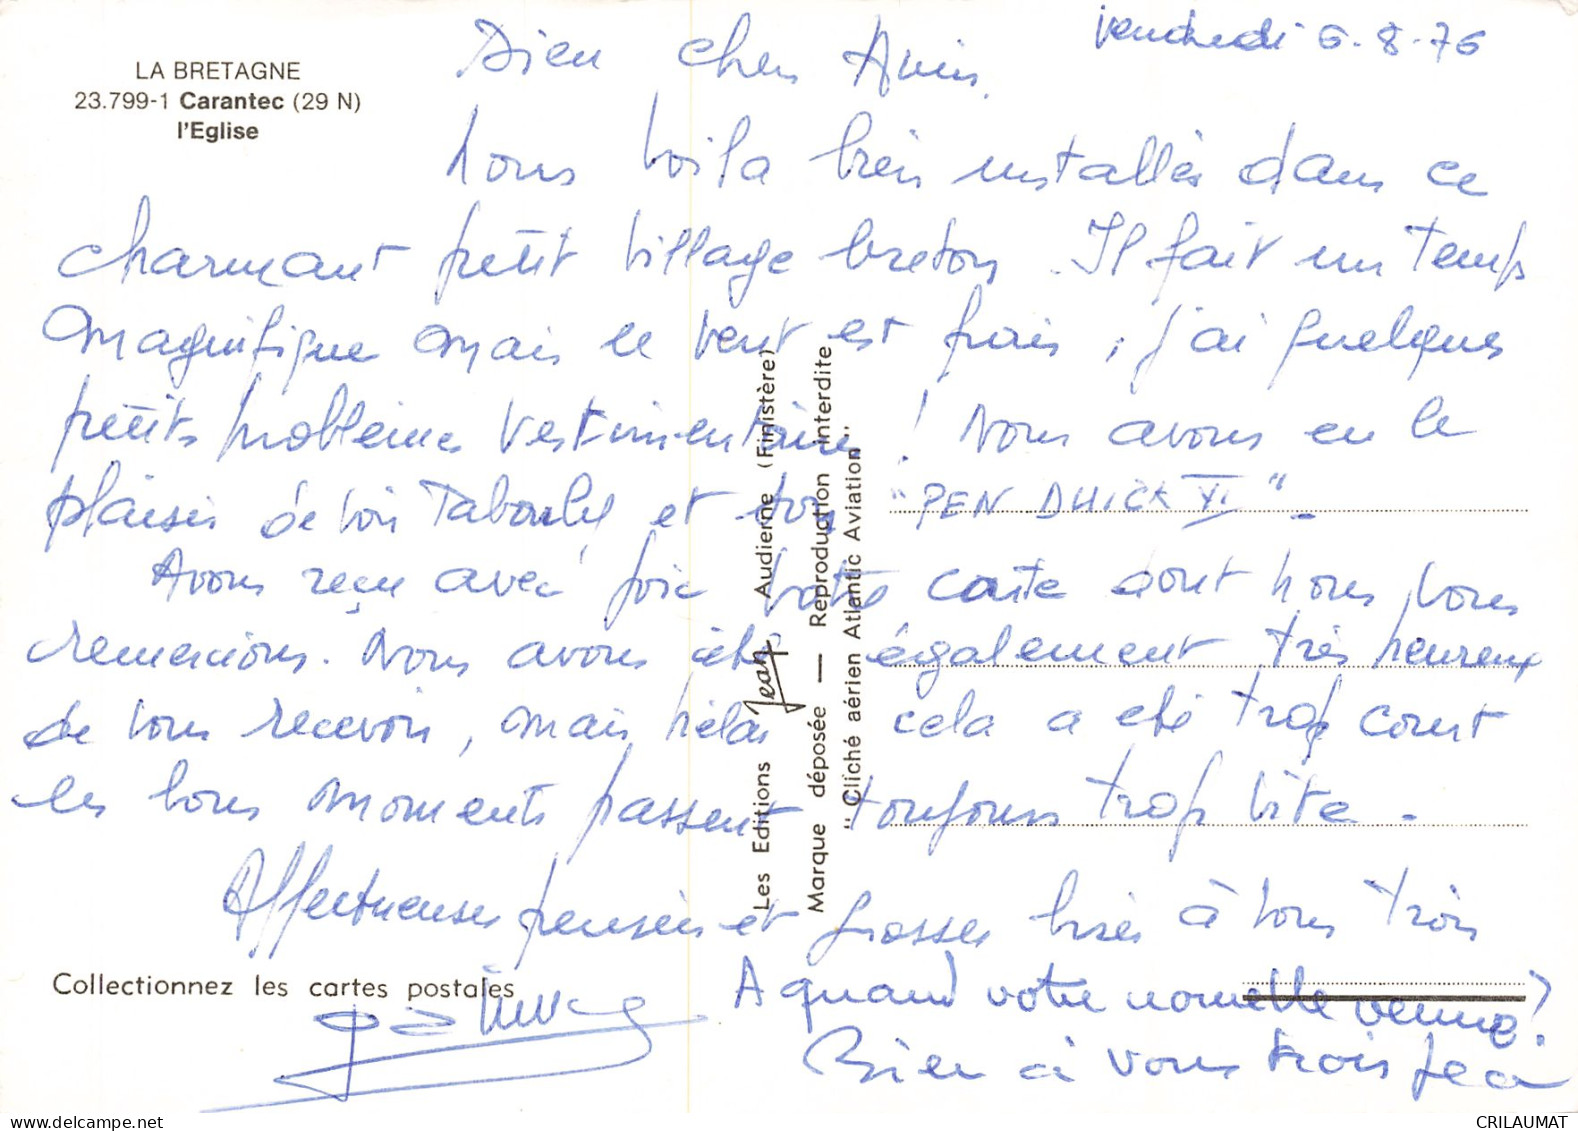 LA BRETAGNE
23.799-1 Carantec (29 N)
l'Eglise
vendredi 6-8-76
Bien chers Amis.
Nous voila bien installés dans ce
charmant petit village breton. Il fait un temps
magnifique mais le vent est frais, j'ai quelques
petits problèmes vestimentaires ! Nous avons eu le
plaisir de voir Tabarly et son "PEN DUICK VI" -
Avons reçu avec joie votre carte dont nous vous
remercions. Nous avons été également très heureux
de vous recevoir, mais hélas cela a été trop court
les bons moments passent toujours trop vite -
Affectueuses pensées et grosses bises à tous trois
A quand votre nouvelle venue ?
Bien à vous trois
Les Editions Jean Audierne (Finistère)
Marque déposée — Reproduction interdite
"Cliché aérien Atlantic Aviation"
Collectionnez les cartes postales
CRILAUMAT